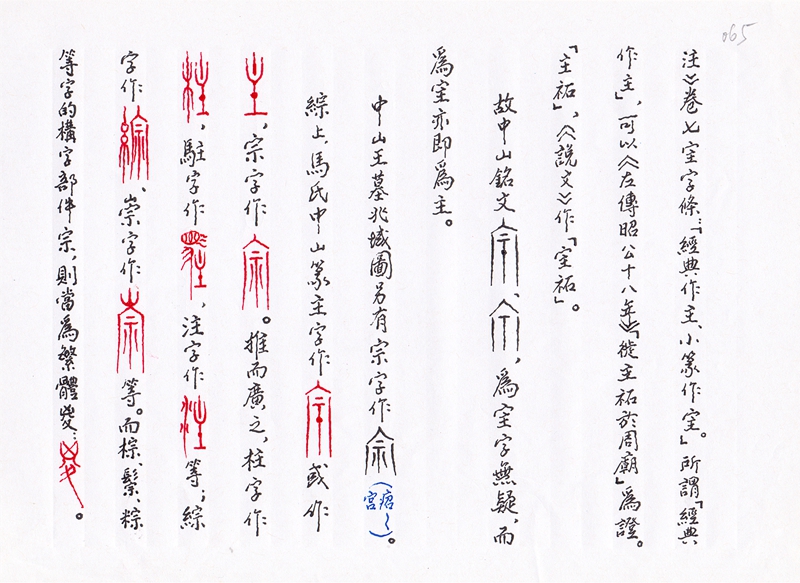 065
注》卷七宔字條:「經典作主、小篆作宔。」所謂「經典
作主」,可以《左傳昭公十八年》「徙主祏於周廟」爲證。
「主祏」,《說文》作「宔祏」。
故中山銘文、,爲宔字無疑,而
爲宔亦即爲主。
中山王墓兆域圖另有宗字作(宫)。
綜上,馬氏中山篆主字作或作
,宗字作。推而廣之,柱字作
,駐字作,注字作等;綜
字作、崇字作等。而棕、鬃、粽
等字的構字部件宗,則當爲繁體㚇:。